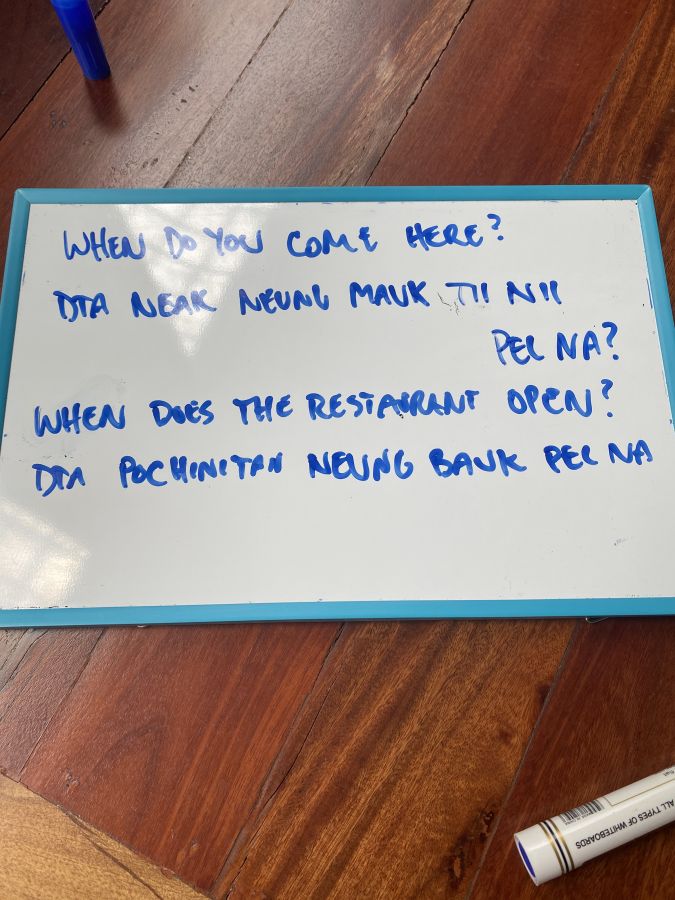 WHEN DO YOU COME HERE?
DTA NEAK NEUNG MAUK TII NII
PEL NA?
WHEN DOES THE RESTAURANT OPEN?
DTA POCHINITAN NEUNG BAUK PEL NA
ALL TYPES OF WHITEBOARDS